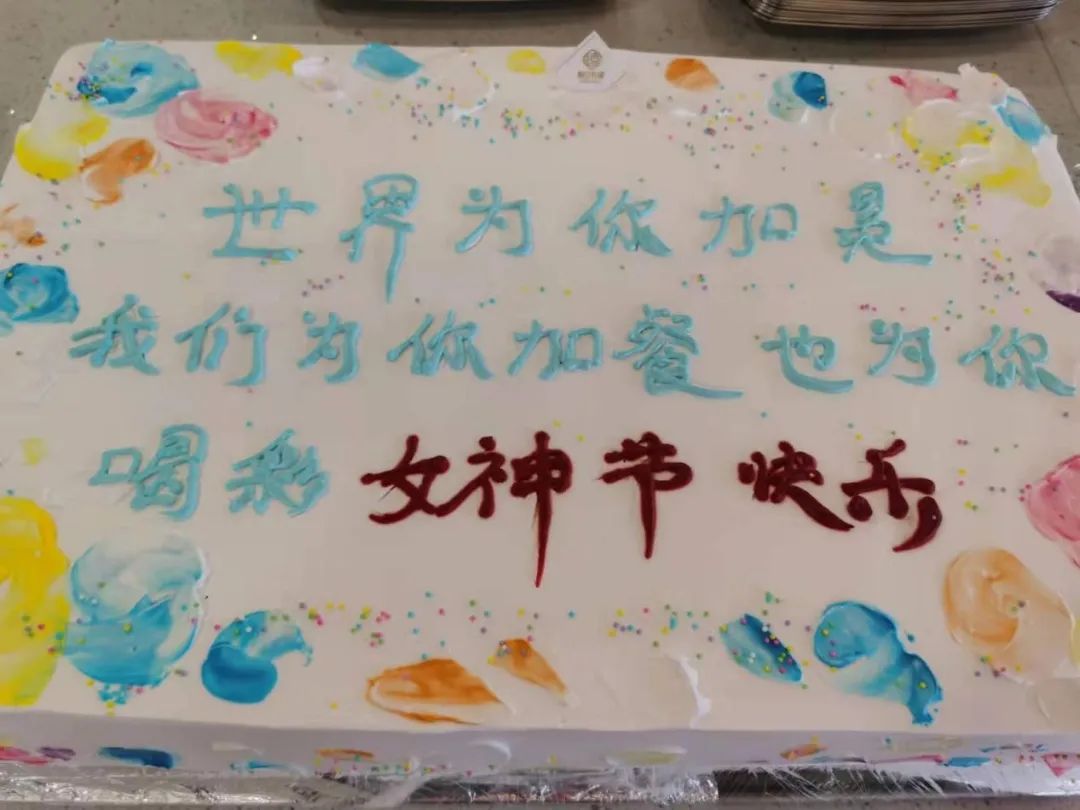 世界为你加是
我们为你加餐 也为你
喝彩 女神节 快乐